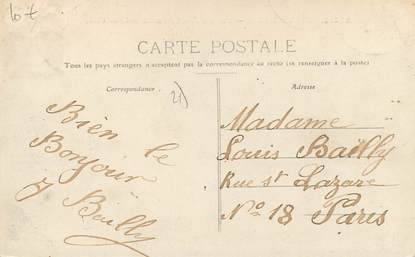 10 t
CARTE POSTALE
Tous les pays étrangers n'acceptent pas la correspondance au recto (se renseigner à la poste)
Correspondance
21)
Adresse
Bien le
Bonjour
J Bailly
Madame
Louis Bailly
Rue St Lazare
No 18 Paris